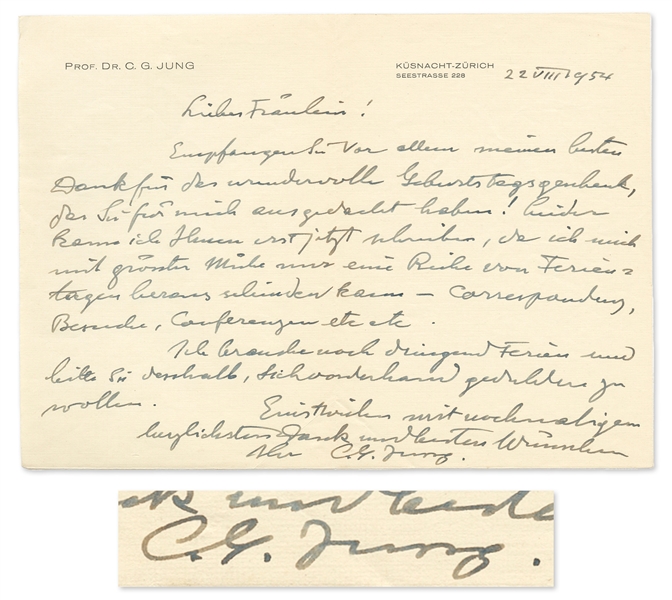 PROF. DR. C. G. JUNG
KÜSNACHT-ZÜRICH
SEESTRASSE 228
22 VIII 1954
Liebes Fräulein!
Empfangen Sie vor allem meinen besten
Dank für das wundervolle Geburtstagsgeschenk,
das Sie für mich ausgedacht haben! Leider
kann ich Ihnen erst jetzt schreiben, da ich mich
mit grösster Mühe nur eine Reihe von Ferien=
tagen heraus schinden kann – Correspondenz,
Besuche, Conferenzen etc etc.
Ich brauche noch dringend Ferien und
bitte Sie desshalb, sich vorderhand gedulden zu
wollen.
Einstweilen mit nochmaligem
herzlichsten Dank und besten Wünschen
Ihr C. G. Jung.
C. G. Jung.